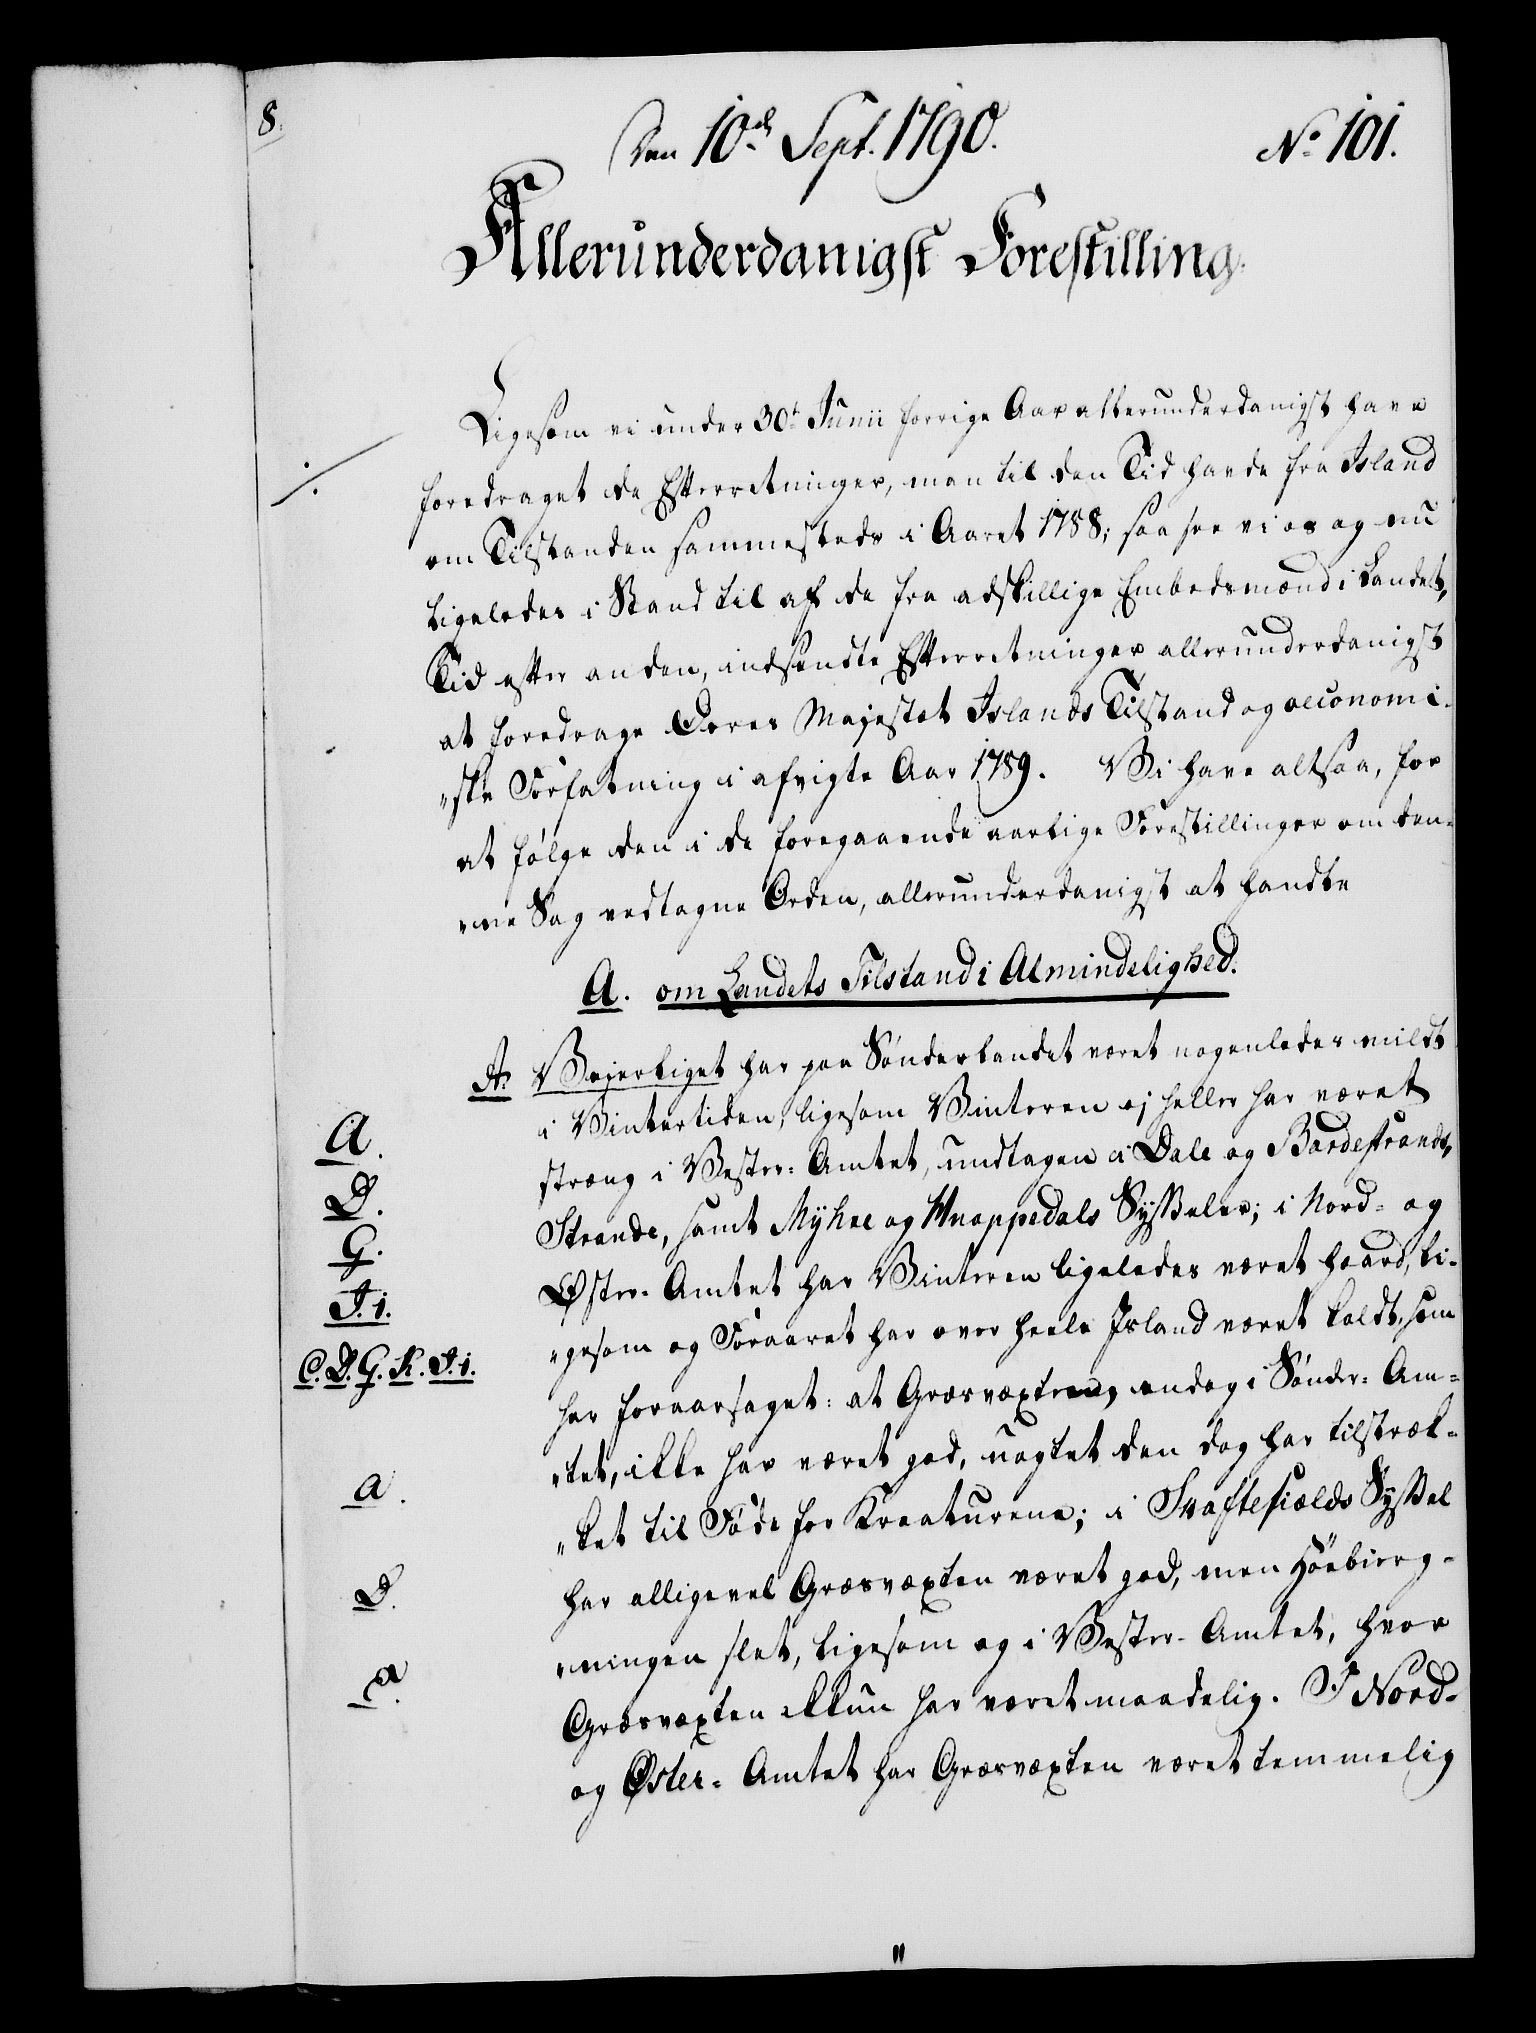 8.
Den 10de Sept. 1790.
No 101.
Allerunderdanigst Forestilling.
Ligesom vi under 30t Junii forrige Aar allerunderdanigst have
foredraget de Efterretninger, man til den Tid havde fra Island
om Tilstanden sammesteds i Aaret 1788; saa see vi os og nu
ligeledes i Stand til af de fra adskillige Embedsmænd i Landet,
Tid efter anden, indsendte Efterretninger allerunderdanigst
at foredrage Deres Majestæt Islands Tilstand og oeconomi-
"ske Forfatning i afvigte Aar 1789. Vi have altsaa, for
at følge den i de foregaaende aarlige Forestillinger om den-
"ne Sag vedtagne Orden, allerunderdanigst at handle
A. om Landets Tilstand i Almindelighed.
A. Vejerliget har paa Sønderlandet været nogenledes mildt
i Vintertiden, ligesom Vinteren ej heller har været
A.
stræng i Vester-Amtet, undtagen i Dale og Bardestrands,
D.
Strande, samt Myhre og Hnappedals Sysseler; i Nord- og
G.
Øster-Amtet har Vinteren ligeledes været haard, li-
I.i.
"gesom og Foraaret har over heele Island været koldt, som
C. D. G. K. I.i.
har foraarsaget: at Græsvæxten, endog i Sønder-Am-
"tet, ikke har været god, uagtet den dog har tilstræk-
a.
"ket til Føde for Kreaturene; i Skaftefields Syssel
D.
har alligevel Græsvæxten været god, men Höebierg-
"ningen slet, ligesom og i Vester-Amtet, hvor
a.
Græsvæxten ikkun har været maadelig. I Nord-
og Øster-Amtet har Græsvæxten været temmelig
"